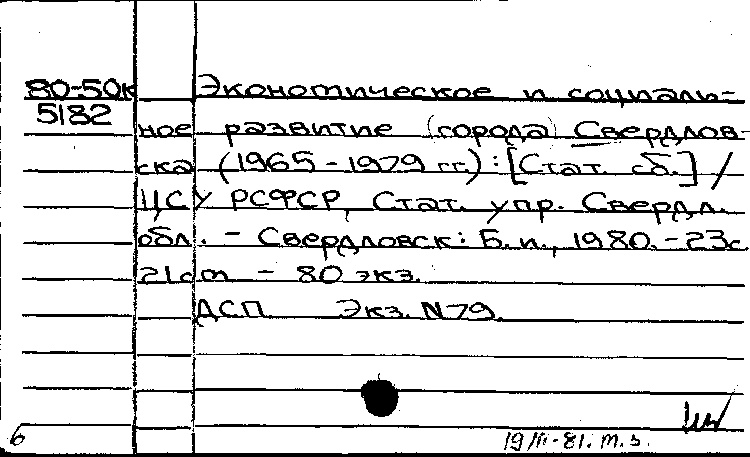 80-50к Экономическое и социаль-
5182
ное развитие (города) Свердлов-
ска (1965-1979 гг.): [Стат. сб.] /
ЦСУ РСФСР, Стат. упр. Свердл.
обл. - Свердловск: Б. и., 1980. - 23с
21см - 80 экз.
ДСП Экз. N79.
6
19/III-81. т.з.